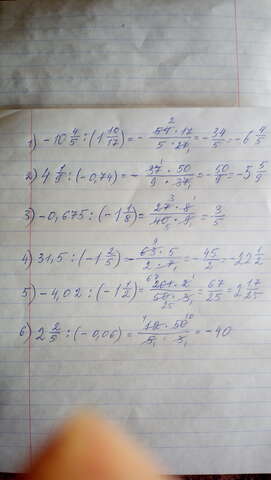 1) -10 4/5 : (1 10/17) = - 54·17/5·27 = - 34/5 = -6 4/5
2) 4 1/9 : (-0,74) = - 37·50/9·37 = - 50/9 = -5 5/9
3) -0,675 : (-1 1/8) = 27·8/40·9 = 3/5
4) 31,5 : (-1 2/5) - 63·5/2·7 = - 45/2 = -22 1/2
5) -4,02 : (-1 1/2) = 201·2/50·3 = 67/25 = 2 17/25
6) 2 2/5 : (-0,06) = 12·50/5·3 = -40